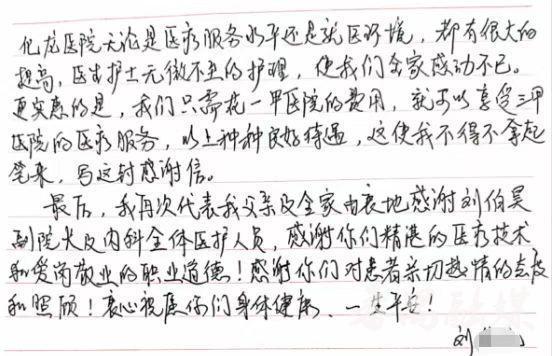 化龙医院无论是医疗服务水平还是就医环境，都有很大的
提高，医生护士无微不至的护理，使我们全家感动不已。
更实惠的是，我们只需花一甲医院的费用，就可以享受三甲
医院的医疗服务，以上种种良好待遇，这使我不得不拿起
笔来，写这封感谢信。
最后，我再次代表我父亲及全家由衷地感谢刘伯昊
副院长及内科全体医护人员，感谢你们精湛的医疗技术
和爱岗敬业的职业道德！感谢你们对患者亲切热情的态度
和照顾！衷心祝愿你们身体健康、一生平安！
刘